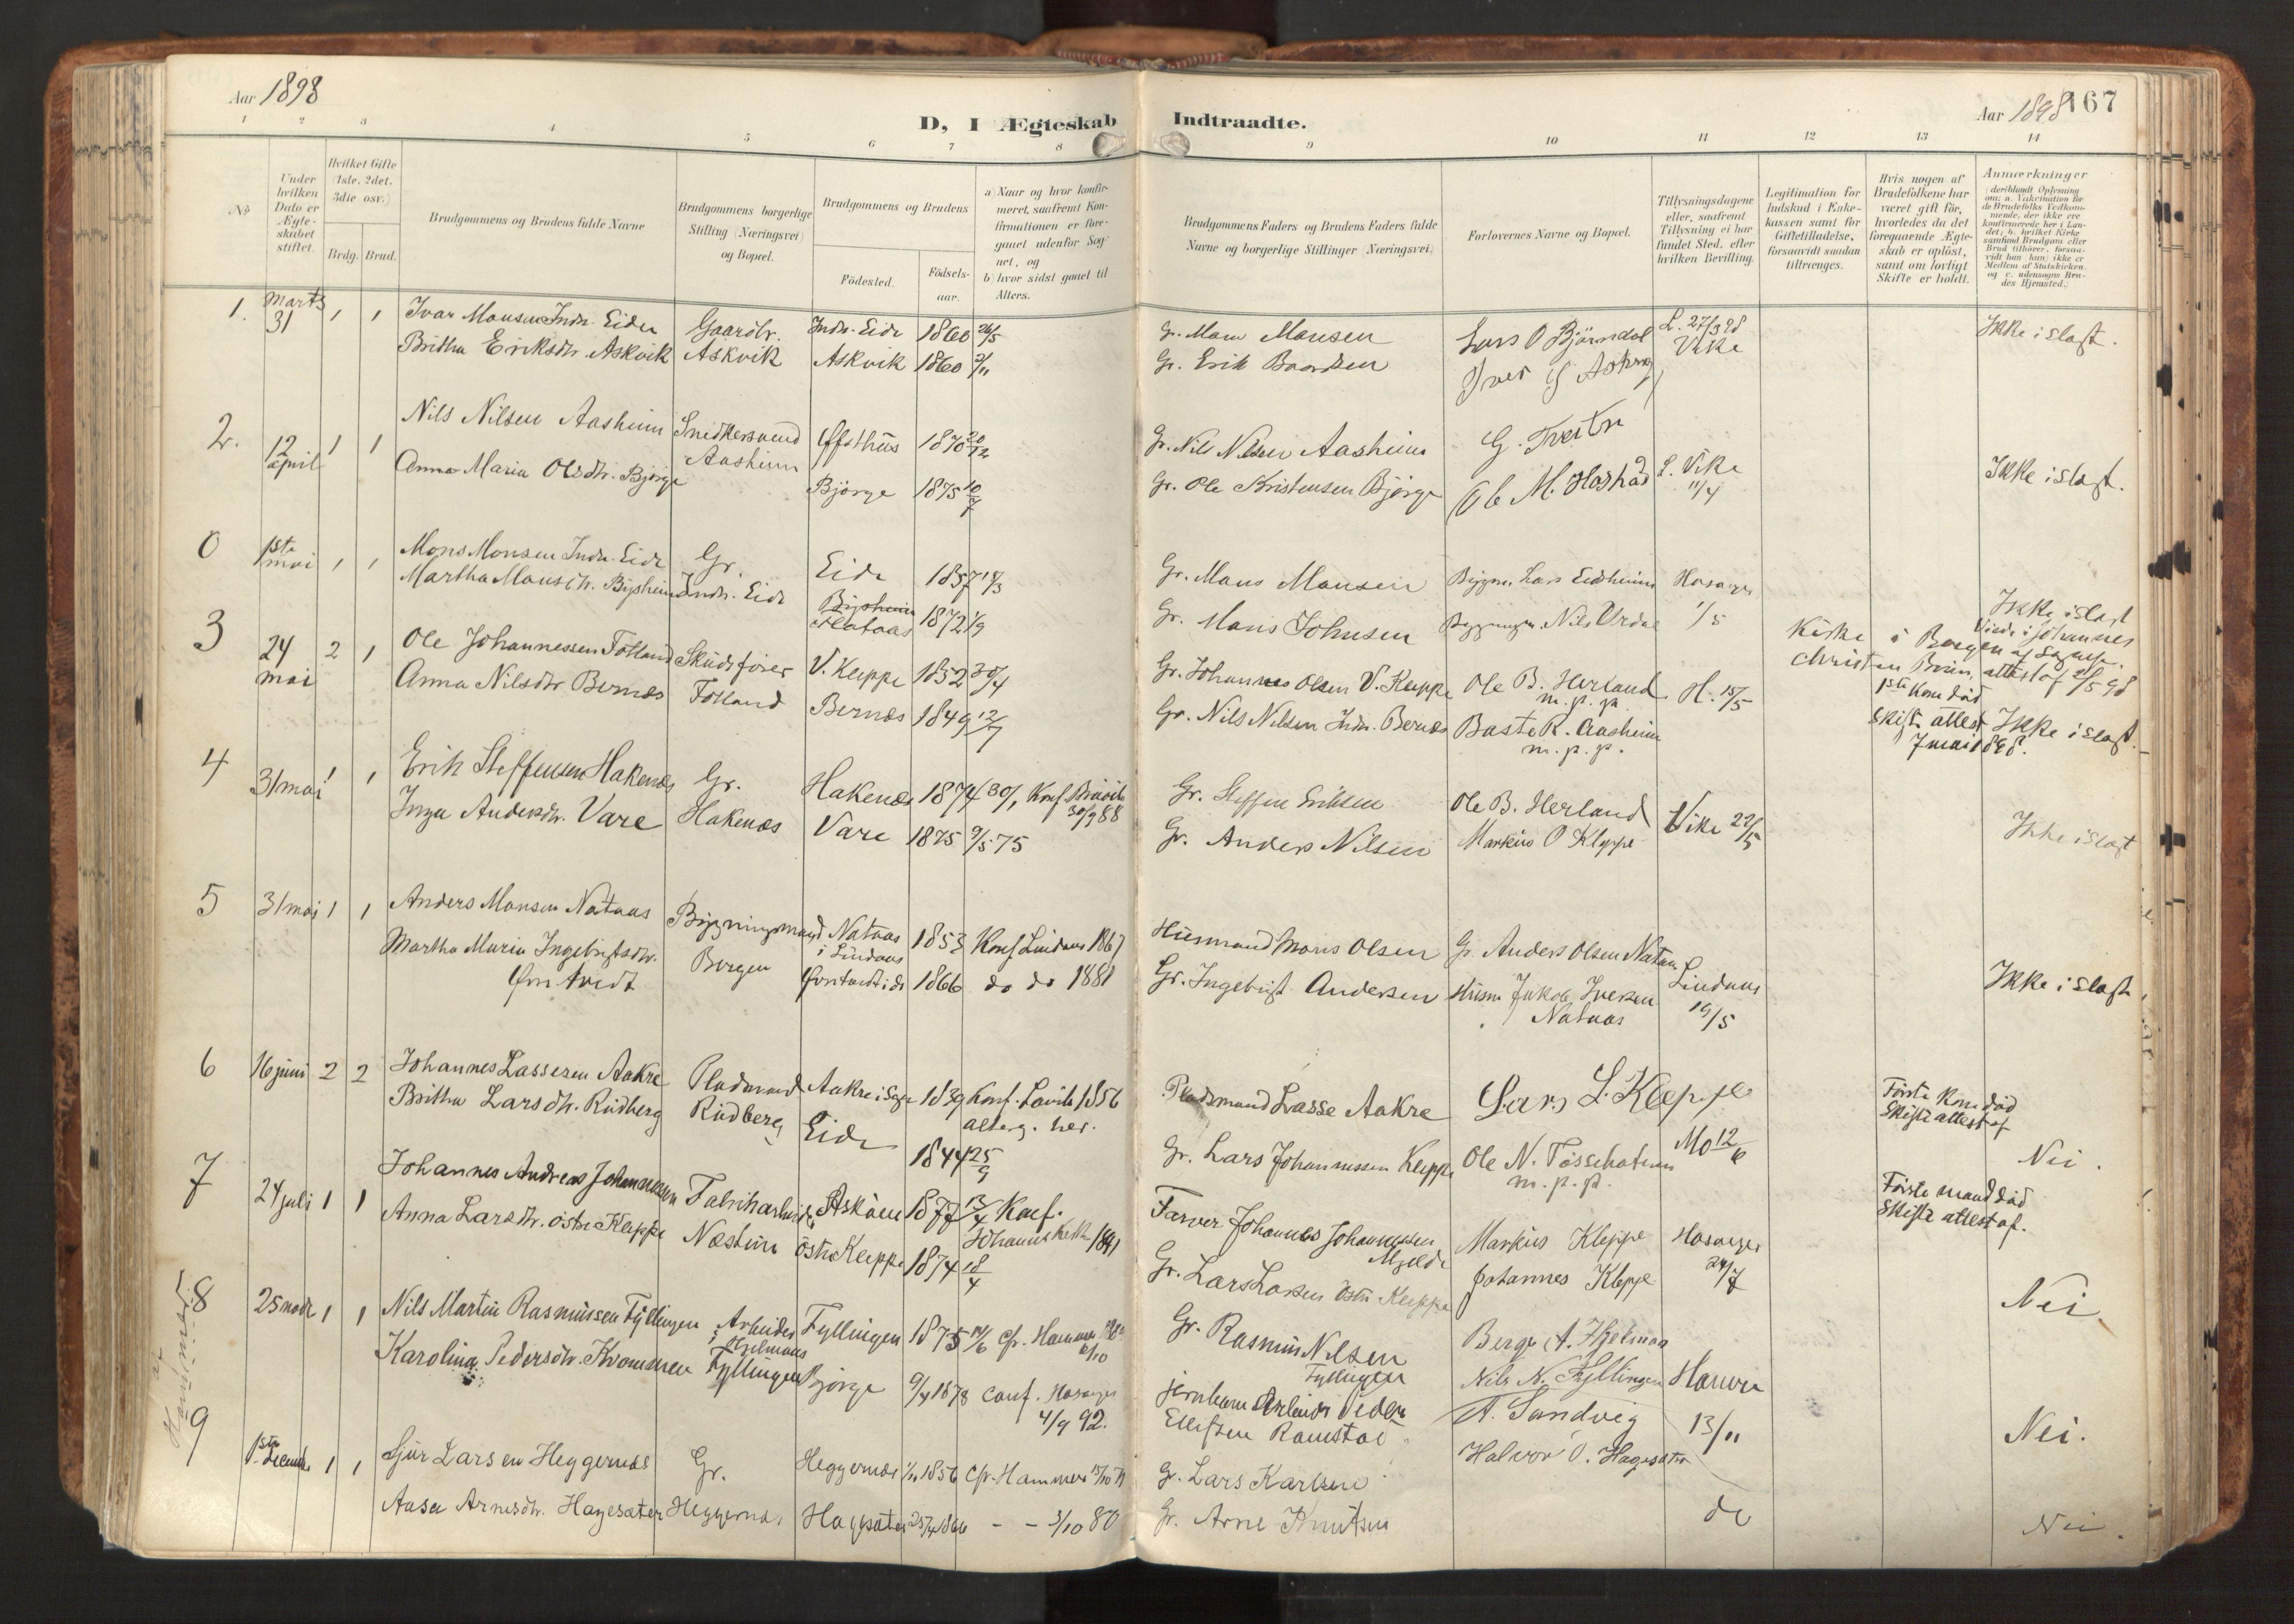 Aar 1898
D, I Ægteskab Indtraadte.
Aar 1898 167
1 2 3 4 5 6 7 8 9 10 11 12 13 14
No
Under hvilken Dato er Ægteskabet stiftet.
Hvilket Gifte (1ste, 2det, 3die osv.)
Brdg. Brud.
Brudgommens og Brudens fulde Navne
Brudgommens borgerlige Stilling (Næringsvei) og Bopæl.
Brudgommens og Brudens
Födested.
Födselsaar.
a) Naar og hvor konfirmeret, saafremt Konfirmationen er foregaaet udenfor Sognet, og
b) hvor sidst gaaet til Alters.
Brudgommens Faders og Brudens Faders fulde Navne og borgerlige Stillinger (Næringsvei)
Forlovernes Navne og Bopæl.
Tillysningsdagene eller, saafremt Tillysning ei har fundet Sted, efter hvilken Bevilling.
Legitimation for Indskud i Enkekassen samt for Giftetilladelse, forsaavidt saadan tiltrænges.
Hvis nogen af Brudefolkene har været gift før, hvorledes da det foregaaende Ægteskab er oplöst, samt om lovligt Skifte er holdt.
Anmærkninger
(deriblandt Oplysning om: a. Vakcination for de Brudefolks Vedkommende, der ikke ere konfirmerede her i Landet; b. hvilket Kirkesamfund Brudgom eller Brud tilhörer, forsaavidt han (hun) ikke er Medlem af Statskirken, og c. udensogns Brudes Hjemsted.)
1. Marts 31 1 1 Ivar Monsen Indr. Eide Gaardbr. Indr. Eide 1860 26/5 Gr. Mons Monsen Lars O Björndal L. 27/3 98 Ikke i slægt.
Britha Eriksdtr. Askvik Askvik Askvik 1860 2/11 Gr. Erik Baardsen Vike
2. 12 april 1 1 Nils Nilsen Aasheim Snedkersvend Ofsthus 1870 20/12 Gr. Nils Nilsen Aasheim G. Tveiten
Anna Maria Olsdtr. Bjørge Aasheim Bjørge 1875 10/7 Gr. Ole Kristensen Bjørge L. Vike 11/4 Ikke i slægt.
0 1ste mai 1 1 Mons Monsen Indr. Eide Gr. Eide 1857 18/3 Gr. Mons Monsen Bygm. Lars Eidsheim Hosanger 1/5
Martha Monsdtr. Bysheim Indr. Eide Bysheim Nataas 1872 1/9 Gr. Mons Johnsen Bygningsm. Nils Urdal Ikke i slægt
Viede i Johannes Kirke i Bergen af Sognepr. Christen Brun, attest af 2/5 98
3 24 mai 2 1 Ole Johannessen Fotland Skudsfører V. Kleppe 1852 30/4 Gr. Johannes Olsen V. Kleppe Ole B. Herland m.p.p. H. 15/5 1ste Kone död
Anna Nilsdtr Bernæs Fotland Bernæs 1849 12/7 Gr. Nils Nilsen Indr. Bernæs Baste R. Aasheim m.p.p. Skifte attest 7 mai 1898. Ikke i slægt.
4 31 mai 1 1 Erik Steffensen Hakenæs Gr. Hakenæs 1874 30/1 Konf Bruvik 30/9 88 Gr. Steffen Eriksen Ole B. Herland Vike 22/5
Inga Andersdtr. Vare Hakenæs Vare 1875 9/5 75 Gr. Anders Nilsen Markus O Kleppe Ikke i slægt
5 31 mai 1 1 Anders Monsen Nataas Bygningsmand Nataas i Lindaas 1853 Konf Lindaas 1867 Husmand Mons Olsen Gr. Anders Olsen Nataas Lindaas 19/5
Martha Maria Ingebrigtsdtr. Fontvedt Bergen 1866 do do 1881 Gr. Ingebrigt Andersen Husm Jakob Iversen Nataas Ikke i slægt
6 16 juni 2 2 Johannes Lassesen Aakre Pladsmand Aakre i 1839 Konf. Lavik 1856 alterg. her. Pladsmand Lasse Aakre Lars L. Kleppe Förste Kone död Skifte attest af
Britha Larsdtr. Rødberg Rødberg Eide 1844 25/9 Gr. Lars Johannessen Kleppe Ole N. Tösseholmen m.p.p. Mo 12/6 Nei.
Förste mand död Skifte attest af.
7 24 juli 1 1 Johannes Andreas Johannessen Fabrikarbeider Askøen 1877 13/4 Konf. Johanneskirke 1891 Farver Johannes Johannessen Mjelde Markus Kleppe Hosanger 24/7
Anna Larsdtr. östre Kleppe Næstun östre Kleppe 1874 18/4 Gr. Lars Larsen östre Kleppe Johannes Kleppe Nei
8 25 1 1 Nils Martin Rasmussen Fyllingen Arbeider i Hjelmaas Fyllingen 1875 14/6 Cfr. Hammer 6/10 Gr. Rasmus Nilsen Fyllingen Berge A. Hjelmaa
Karolina Pedersdtr. Kvammen Fyllingen Bjørge 9/4 1878 Conf. Hosanger 4/9 92. Jernbane Arbeider Peder Ellefsen Ramstad Nils N. Fyllingen Hammer 13/11 Nei.
9 1ste December 1 1 Sjur Larsen Heggernæs Gr. Heggernæs 1/11 1856 Cfr. Hammer 15/10 71 Gr. Lars Karlsen A. Sandvig
Aasa Arnesdtr. Hagesæter Heggernæs Hagesæter 25/4 1866 - - 3/10 80 Gr. Arne Knutsen Halvor O. Hagesæter do Nei.